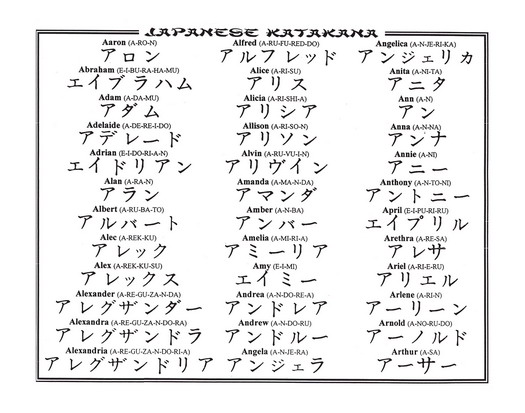 JAPANESE KATAKANA
Aaron (A-RO-N)
アロン
Abraham (E-I-BU-RA-HA-MU)
エイブラハム
Adam (A-DA-MU)
アダム
Adelaide (A-DE-RE-I-DO)
アデレード
Adrian (E-I-DO-RI-A-N)
エイドリアン
Alan (A-RA-N)
アラン
Albert (A-RU-BA-TO)
アルバート
Alec (A-REK-KU)
アレック
Alex (A-REK-KU-SU)
アレックス
Alexander (A-RE-GU-ZA-N-DA)
アレグザンダー
Alexandra (A-RE-GU-ZA-N-DO-RA)
アレグザンドラ
Alexandria (A-RE-GU-ZA-N-DO-RI-A)
アレグザンドリア
Alfred (A-RU-FU-RED-DO)
アルフレッド
Alice (A-RI-SU)
アリス
Alicia (A-RI-SHI-A)
アリシア
Allison (A-RI-SO-N)
アリソン
Alvin (A-RU-VU-I-N)
アリヴイン
Amanda (A-MA-N-DA)
アマンダ
Amber (A-N-BA)
アンバー
Amelia (A-MI-RI-A)
アミーリア
Amy (E-I-MI)
エイミー
Andrea (A-N-DO-RE-A)
アンドレア
Andrew (A-N-DO-RU)
アンドルー
Angela (A-N-JE-RA)
アンジェラ
Angelica (A-N-JE-RI-KA)
アンジェリカ
Anita (A-NI-TA)
アニタ
Ann (A-N)
アン
Anna (A-N-NA)
アンナ
Annie (A-NI)
アニー
Anthony (A-N-TO-NI)
アントニー
April (E-I-PU-RI-RU)
エイプリル
Arethra (A-RE-SA)
アレサ
Ariel (A-RI-E-RU)
アリエル
Arlene (A-RI-N)
アーリーン
Arnold (A-NO-RU-DO)
アーノルド
Arthur (A-SA)
アーサー